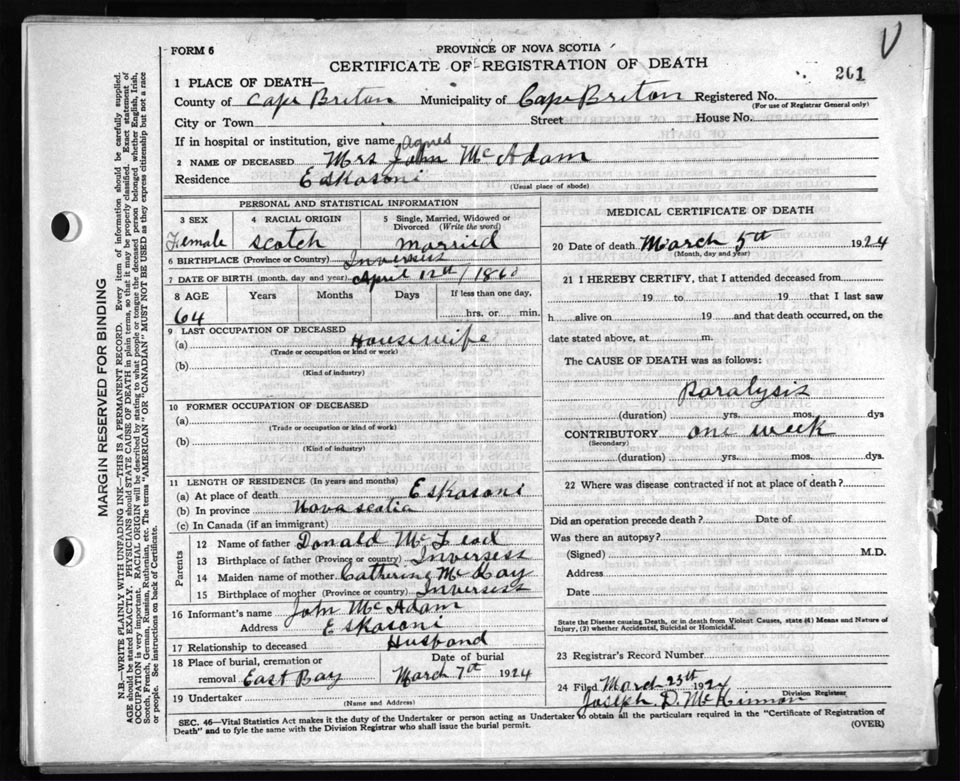 V
FORM 6
PROVINCE OF NOVA SCOTIA
CERTIFICATE OF REGISTRATION OF DEATH
201
1 PLACE OF DEATH—
County of Cape Briton Municipality of Cape Briton Registered No.
(For use of Registrar General only)
City or Town Street House No.
If in hospital or institution, give name
Agnes
2 NAME OF DECEASED Mrs John McAdam
Residence Eskasoni
(Usual place of abode)
PERSONAL AND STATISTICAL INFORMATION
3 SEX Female
4 RACIAL ORIGIN Scotch
5 Single, Married, Widowed or Divorced (Write the word) married
6 BIRTHPLACE (Province or Country) Inverness
7 DATE OF BIRTH (month, day and year) April 12th/1860
8 AGE Years Months Days If less than one day,
64 hrs. or min.
9 LAST OCCUPATION OF DECEASED
(a) Housewife
(Trade or occupation or kind or work)
(b)
(Kind of industry)
10 FORMER OCCUPATION OF DECEASED
(a)
(Trade or occupation or kind of work)
(b)
(Kind of industry)
11 LENGTH OF RESIDENCE (In years and months)
(a) At place of death Eskasoni
(b) In province Nova scotia
(c) In Canada (if an immigrant)
Parents
12 Name of father Donald McLeod
13 Birthplace of father (Province or country) Inverness
14 Maiden name of mother Catherine McKay
15 Birthplace of mother (Province or country) Inverness
16 Informant's name John McAdam
Address Eskasoni
17 Relationship to deceased Husband
18 Place of burial, cremation or removal East Bay
Date of burial March 7th 1924
19 Undertaker
(Name and Address)
MEDICAL CERTIFICATE OF DEATH
20 Date of death March 5th 1924
(Month, day and year)
21 I HEREBY CERTIFY, that I attended deceased from
19 to 19 that I last saw
h alive on 19 and that death occurred, on the
date stated above, at m.
The CAUSE OF DEATH was as follows:
Paralysis
(duration) yrs. mos. dys
CONTRIBUTORY one week
(Secondary)
(duration) yrs. mos. dys.
22 Where was disease contracted if not at place of death?
Did an operation precede death? Date of
Was there an autopsy?
(Signed) M.D.
Address
Date
State the Disease causing Death, or in death from Violent Causes, state (1) Means and Nature of
Injury, (2) whether Accidental, Suicidal or Homicidal.
23 Registrar's Record Number
24 Filed March 25th 1924
Joseph D. McKinnon
Division Registrar
SEC. 46—Vital Statistics Act makes it the duty of the Undertaker or person acting as Undertaker to obtain all the particulars required in the "Certificate of Registration of
Death" and to fyle the same with the Division Registrar who shall issue the burial permit.
(OVER)
MARGIN RESERVED FOR BINDING
N.B.—WRITE PLAINLY WITH UNFADING INK—THIS IS A PERMANENT RECORD. Every item of information should be carefully supplied.
AGE should be stated EXACTLY. PHYSICIANS should STATE CAUSE OF DEATH in plain terms, so that it may be properly classified. Exact statement of
OCCUPATION is very important. RACIAL ORIGIN will be described by stating to what people or tongue the deceased person belonged whether English, Irish,
Scotch, French, German, Russian, Ruthenian, etc. The terms "AMERICAN" OR "CANADIAN" MUST NOT BE USED as they express citizenship but not a race
or people. See instructions on back of Certificate.